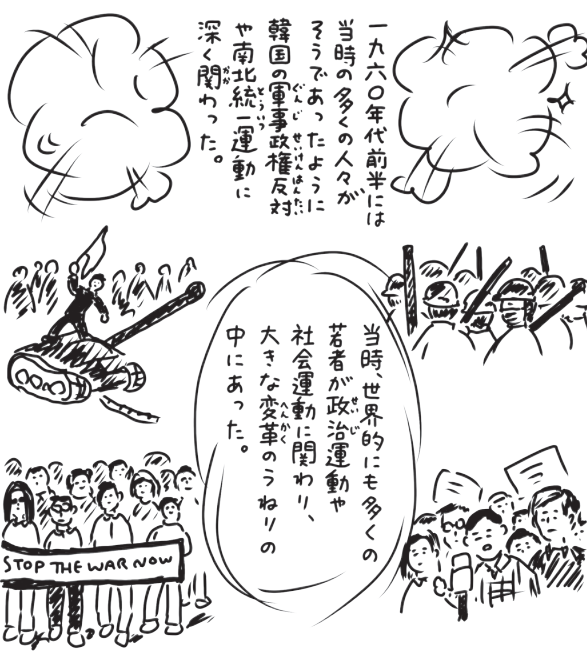 一九六〇年代前半には
当時の多くの人々が
そうであったように
韓国の軍事政権反対
や南北統一運動に
深く関わった。
当時、世界的にも多くの
若者が政治運動や
社会運動に関わり、
大きな変革のうねりの
中にあった。
STOP THE WAR NOW